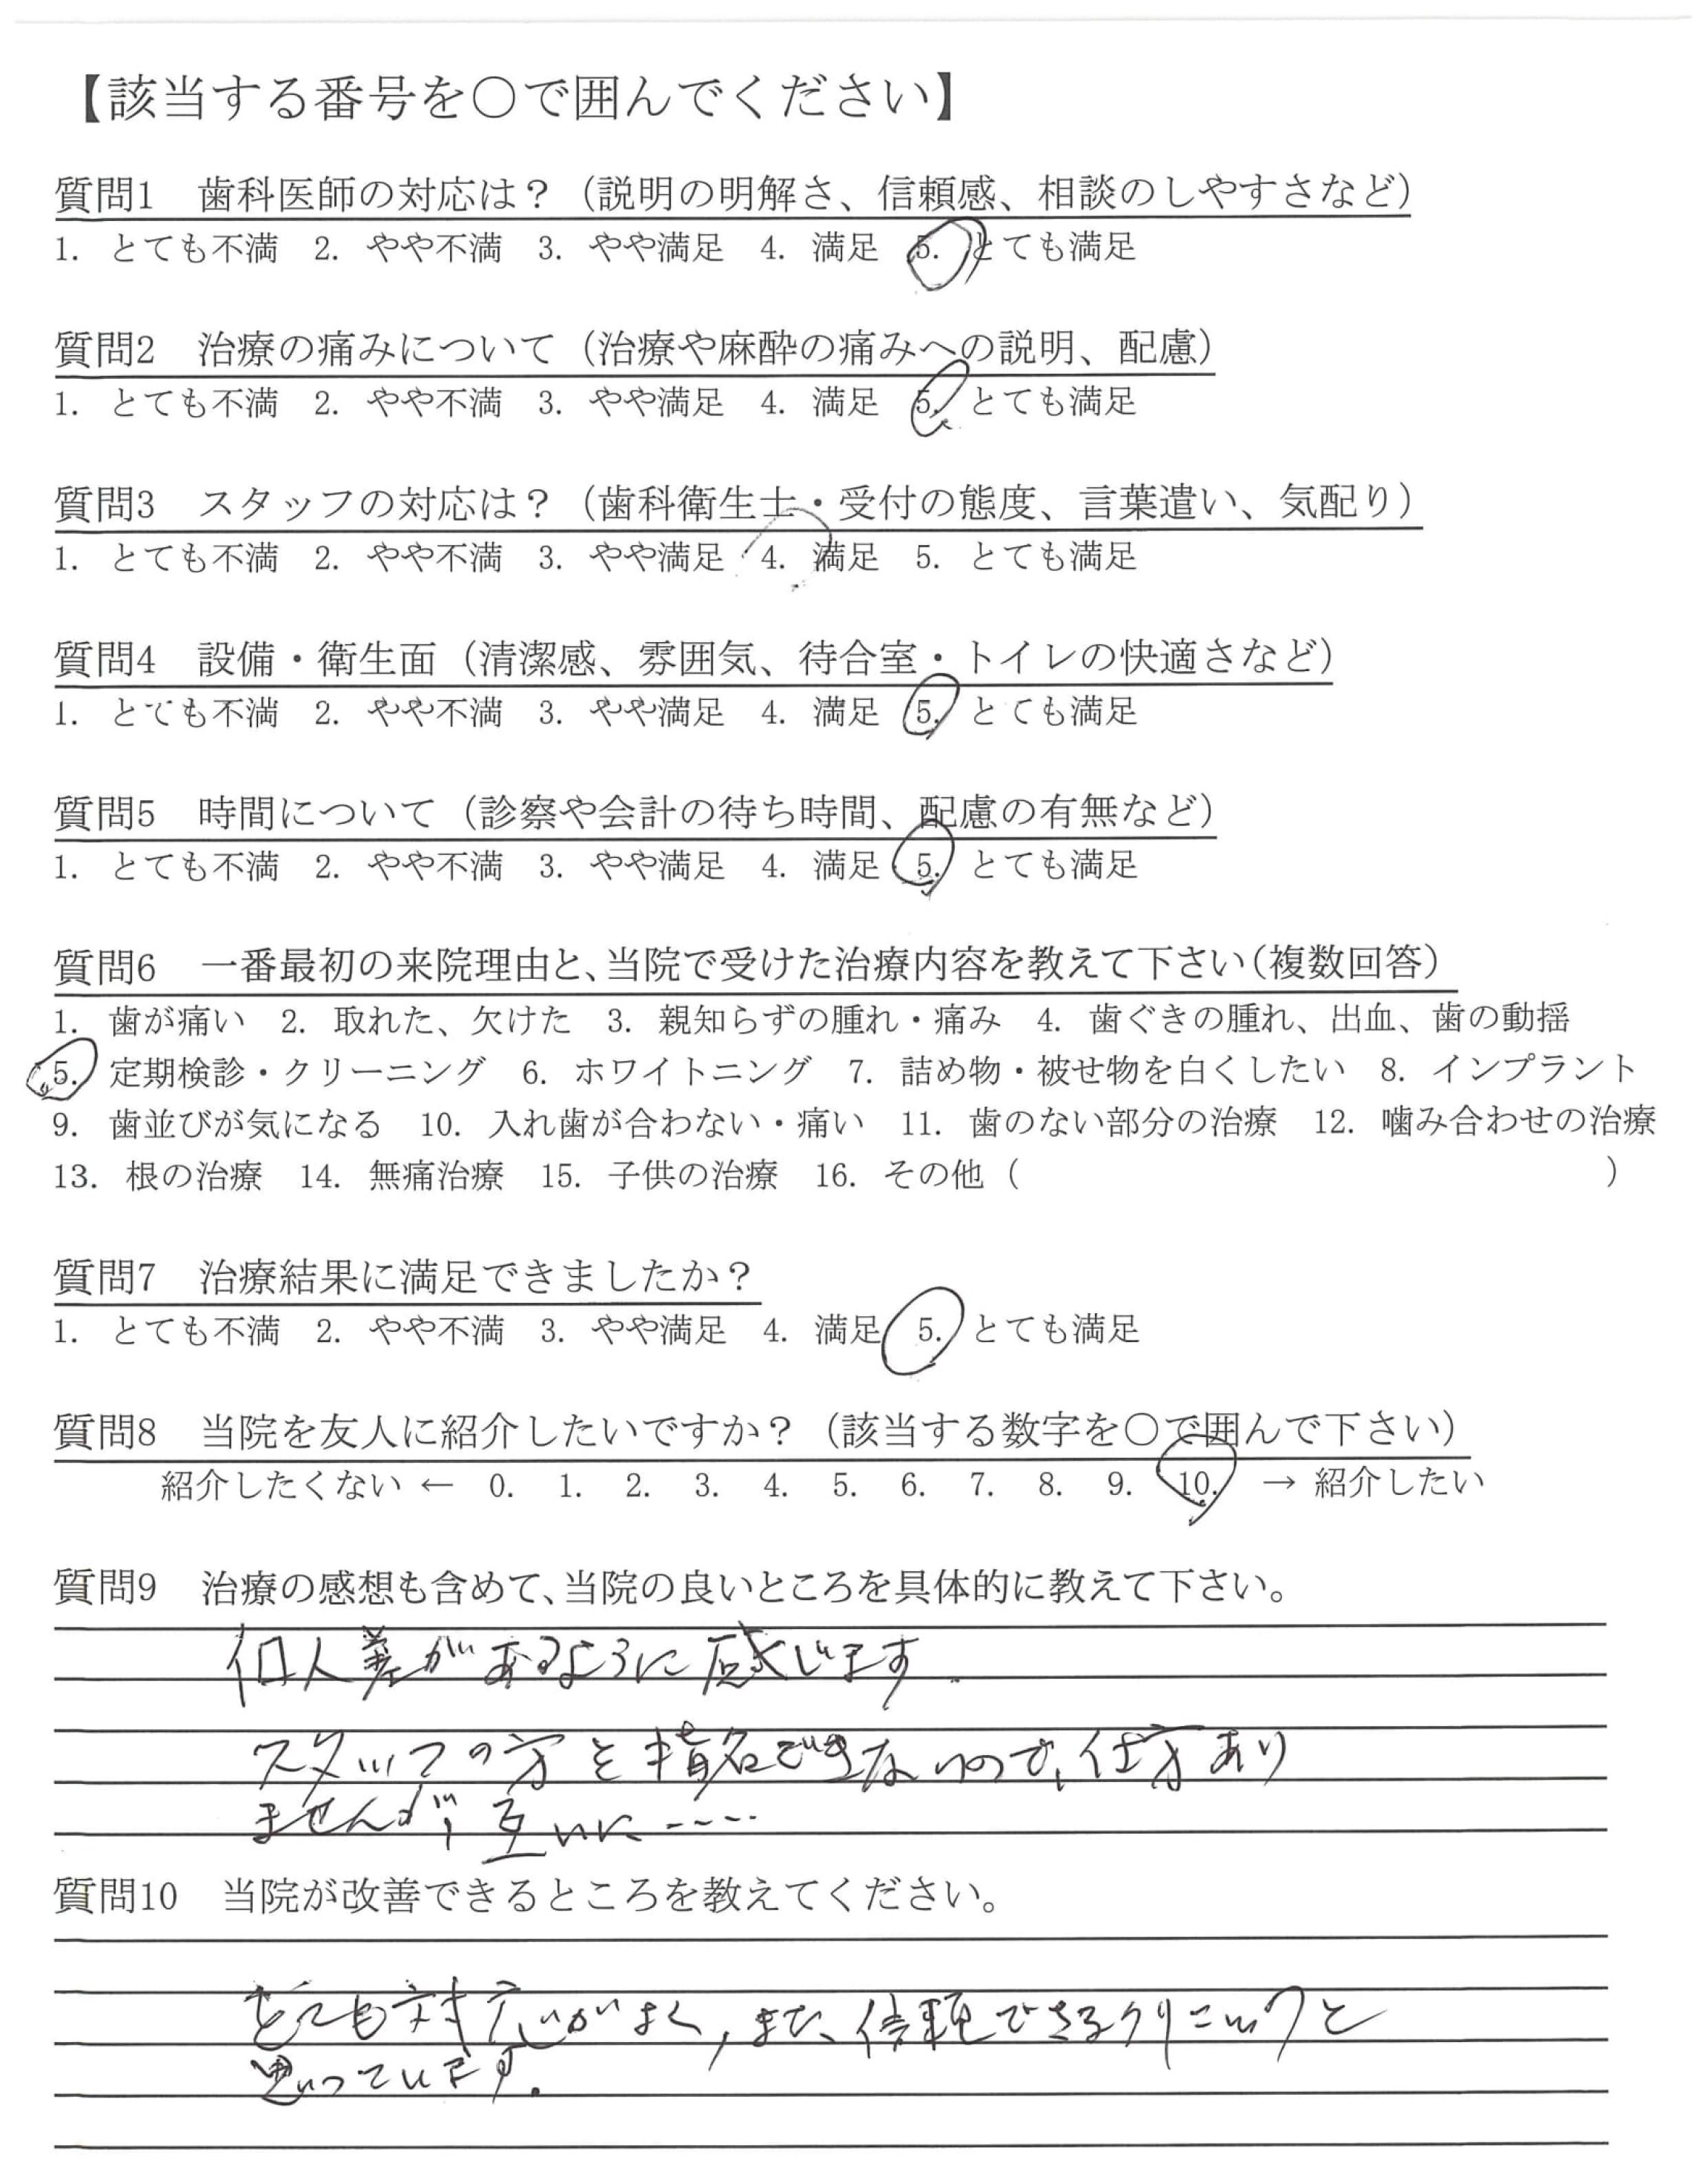 【該当する番号を〇で囲んでください】
質問1　歯科医師の対応は？（説明の明解さ、信頼感、相談のしやすさなど）
1. とても不満　2. やや不満　3. やや満足　4. 満足　5. とても満足
質問2　治療の痛みについて（治療や麻酔の痛みへの説明、配慮）
1. とても不満　2. やや不満　3. やや満足　4. 満足　5. とても満足
質問3　スタッフの対応は？（歯科衛生士・受付の態度、言葉遣い、気配り）
1. とても不満　2. やや不満　3. やや満足　4. 満足　5. とても満足
質問4　設備・衛生面（清潔感、雰囲気、待合室・トイレの快適さなど）
1. とても不満　2. やや不満　3. やや満足　4. 満足　5. とても満足
質問5　時間について（診察や会計の待ち時間、配慮の有無など）
1. とても不満　2. やや不満　3. やや満足　4. 満足　5. とても満足
質問6　一番最初の来院理由と、当院で受けた治療内容を教えて下さい（複数回答）
1. 歯が痛い　2. 取れた、欠けた　3. 親知らずの腫れ・痛み　4. 歯ぐきの腫れ、出血、歯の動揺
5. 定期検診・クリーニング　6. ホワイトニング　7. 詰め物・被せ物を白くしたい　8. インプラント
9. 歯並びが気になる　10. 入れ歯が合わない・痛い　11. 歯のない部分の治療　12. 噛み合わせの治療
13. 根の治療　14. 無痛治療　15. 子供の治療　16. その他（　　　　　）
質問7　治療結果に満足できましたか？
1. とても不満　2. やや不満　3. やや満足　4. 満足　5. とても満足
質問8　当院を友人に紹介したいですか？（該当する数字を〇で囲んで下さい）
紹介したくない ← 0. 1. 2. 3. 4. 5. 6. 7. 8. 9. 10. → 紹介したい
質問9　治療の感想も含めて、当院の良いところを具体的に教えて下さい。
個人差があるように感じます
スタッフの方を指名できないので、仕方あり
ませんが、互いに‥‥
質問10　当院が改善できるところを教えてください。
とても対応がよく，また、信頼できるクリニックと
思っています.